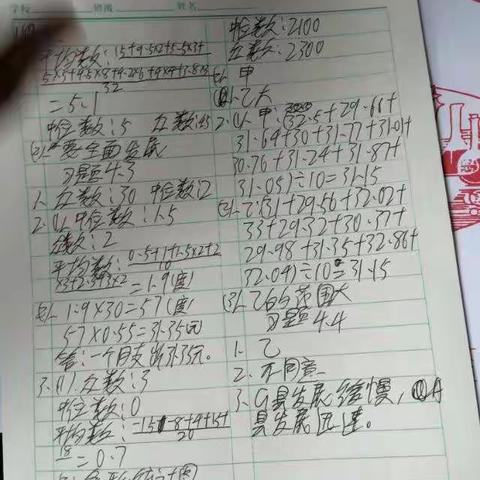 学校 班级 姓名
平均数:15+9.5×2+5.5×3+
5×5+9.5×8+9.2×6+9×9+3.8×3
32
=5.1
中位数:5 众数:4.5
(2).要全面发展
习题4.3
1.众数:30 中位数:2
2.(1).中位数:1.5
众数:2
平均数:0.5+1+1.5×2+2
×3+2.5+3×2
10
=1.9(度)
(2).1.9×30=57(度)
57×0.55=31.35元
答:一个月支出31.35元。
3.(1)众数:3
中位数:0
平均数:-15-8+9+15+
18
20
=0.7
中位数:2100
众数:2300
(2).甲
乙大
2.(1).甲:(32.5+29.66+
31.64+30+31.77+31.01+
30.76+31.24+31.87+
31.05)÷10=31.15
(2).乙:(31+29.56+32.02+
33+29.32+30.37+
29.98+31.35+32.86+
32.04)÷10=31.15
(3).乙的范围大
习题4.4
1.乙
2.不同意
3.G县发展缓慢,A
县发展迅速。